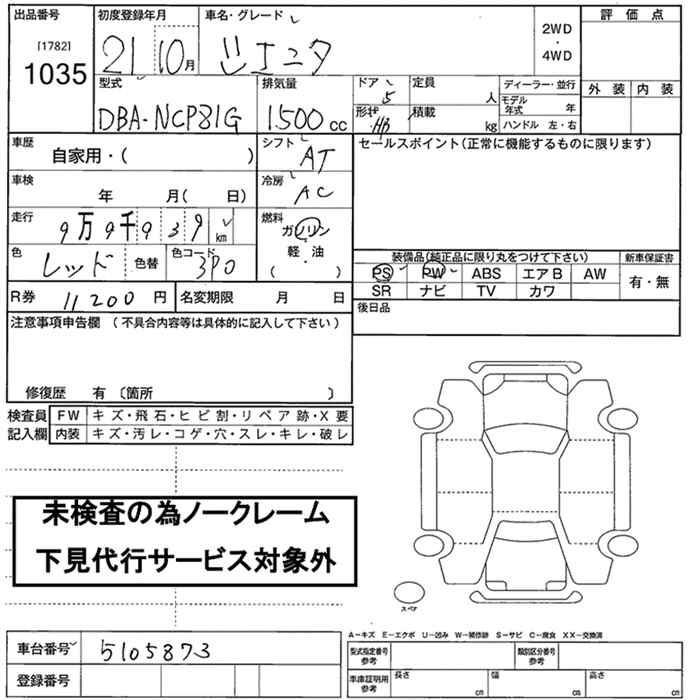 出品番号 初度登録年月 車名・グレード 評価点
[1782] 21 10月 シエンタ 2WD・4WD
1035 型式 排気量 ドア 5 定員 人 ディーラー・並行 外装 内装
DBA-NCP81G 1500cc 形状 HB 積載 kg モデル年式 年
ハンドル 左・右
車歴 自家用・( ) シフト AT セールスポイント(正常に機能するものに限ります)
車検 年 月( 日) 冷房 AC
走行 9万9千939km 燃料 ガソリン
色 レッド 色替 色コード 3P0 軽・油 ( )
装備品(純正品に限り丸をつけて下さい) 新車保証書
PS PW ABS エアB AW 有・無
SR ナビ TV カワ
R券 11200円 名変期限 月 日 後日品
注意事項申告欄(不具合内容等は具体的に記入して下さい)
修復歴 有〔箇所 〕
検査員 FW キズ・飛石・ヒビ割・リペア跡・X要
記入欄 内装 キズ・汚レ・コゲ・穴・スレ・キレ・破レ
未検査の為ノークレーム
下見代行サービス対象外
スペア
A-キズ E-エクボ U-凹み W-補修跡 S-サビ C-腐食 XX-交換済
車台番号 5105873 型式指定番号 参考 類別区分番号 参考
登録番号 車庫証明用 参考 長さ cm 幅 cm 高さ cm